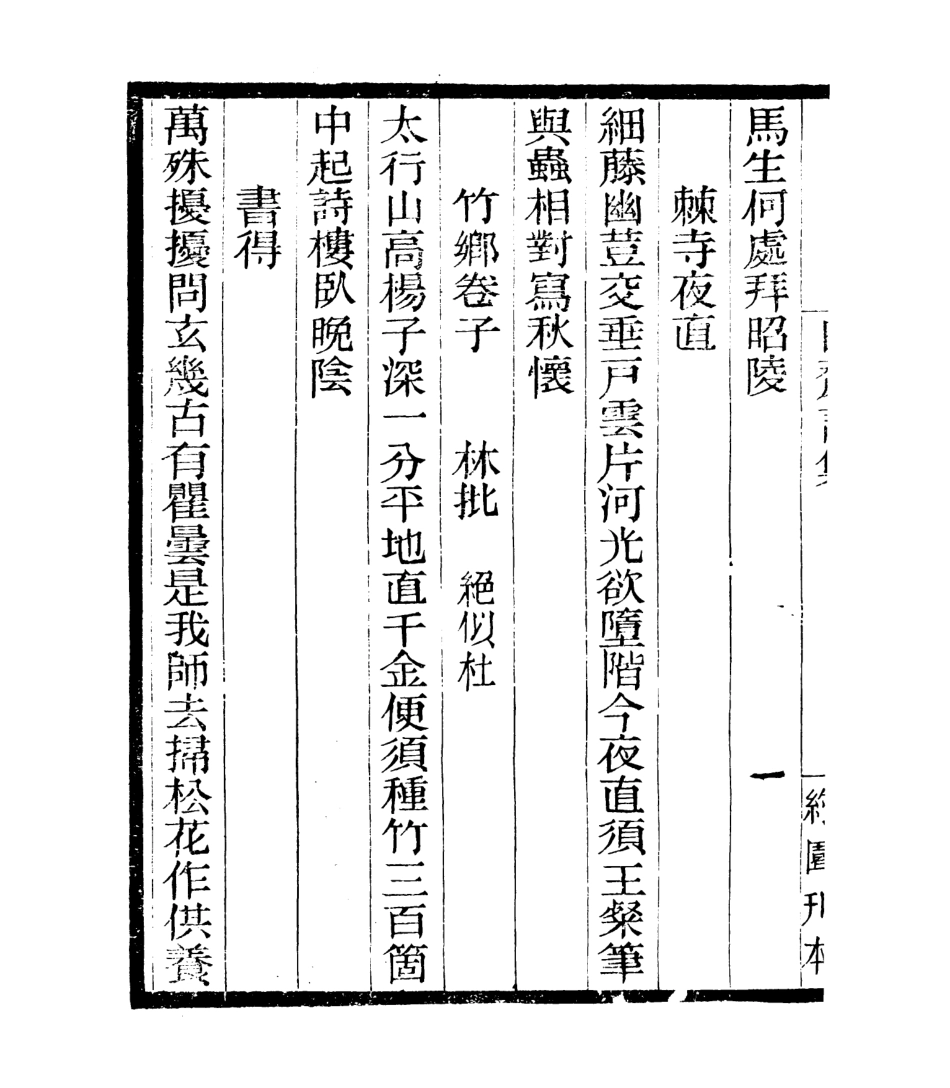 馬生何處拜昭陵
棘寺夜直
細藤幽荳交垂戸雲片河光欲墮階今夜直須王粲筆
與蟲相對寫秋懷
竹鄉卷子　林批　絕似杜
太行山高楊子深一分平地直千金便須種竹三百箇
中起詩樓臥晚陰
書得
萬殊擾擾問玄幾古有瞿曇是我師去掃松花作供養
一
園刊本